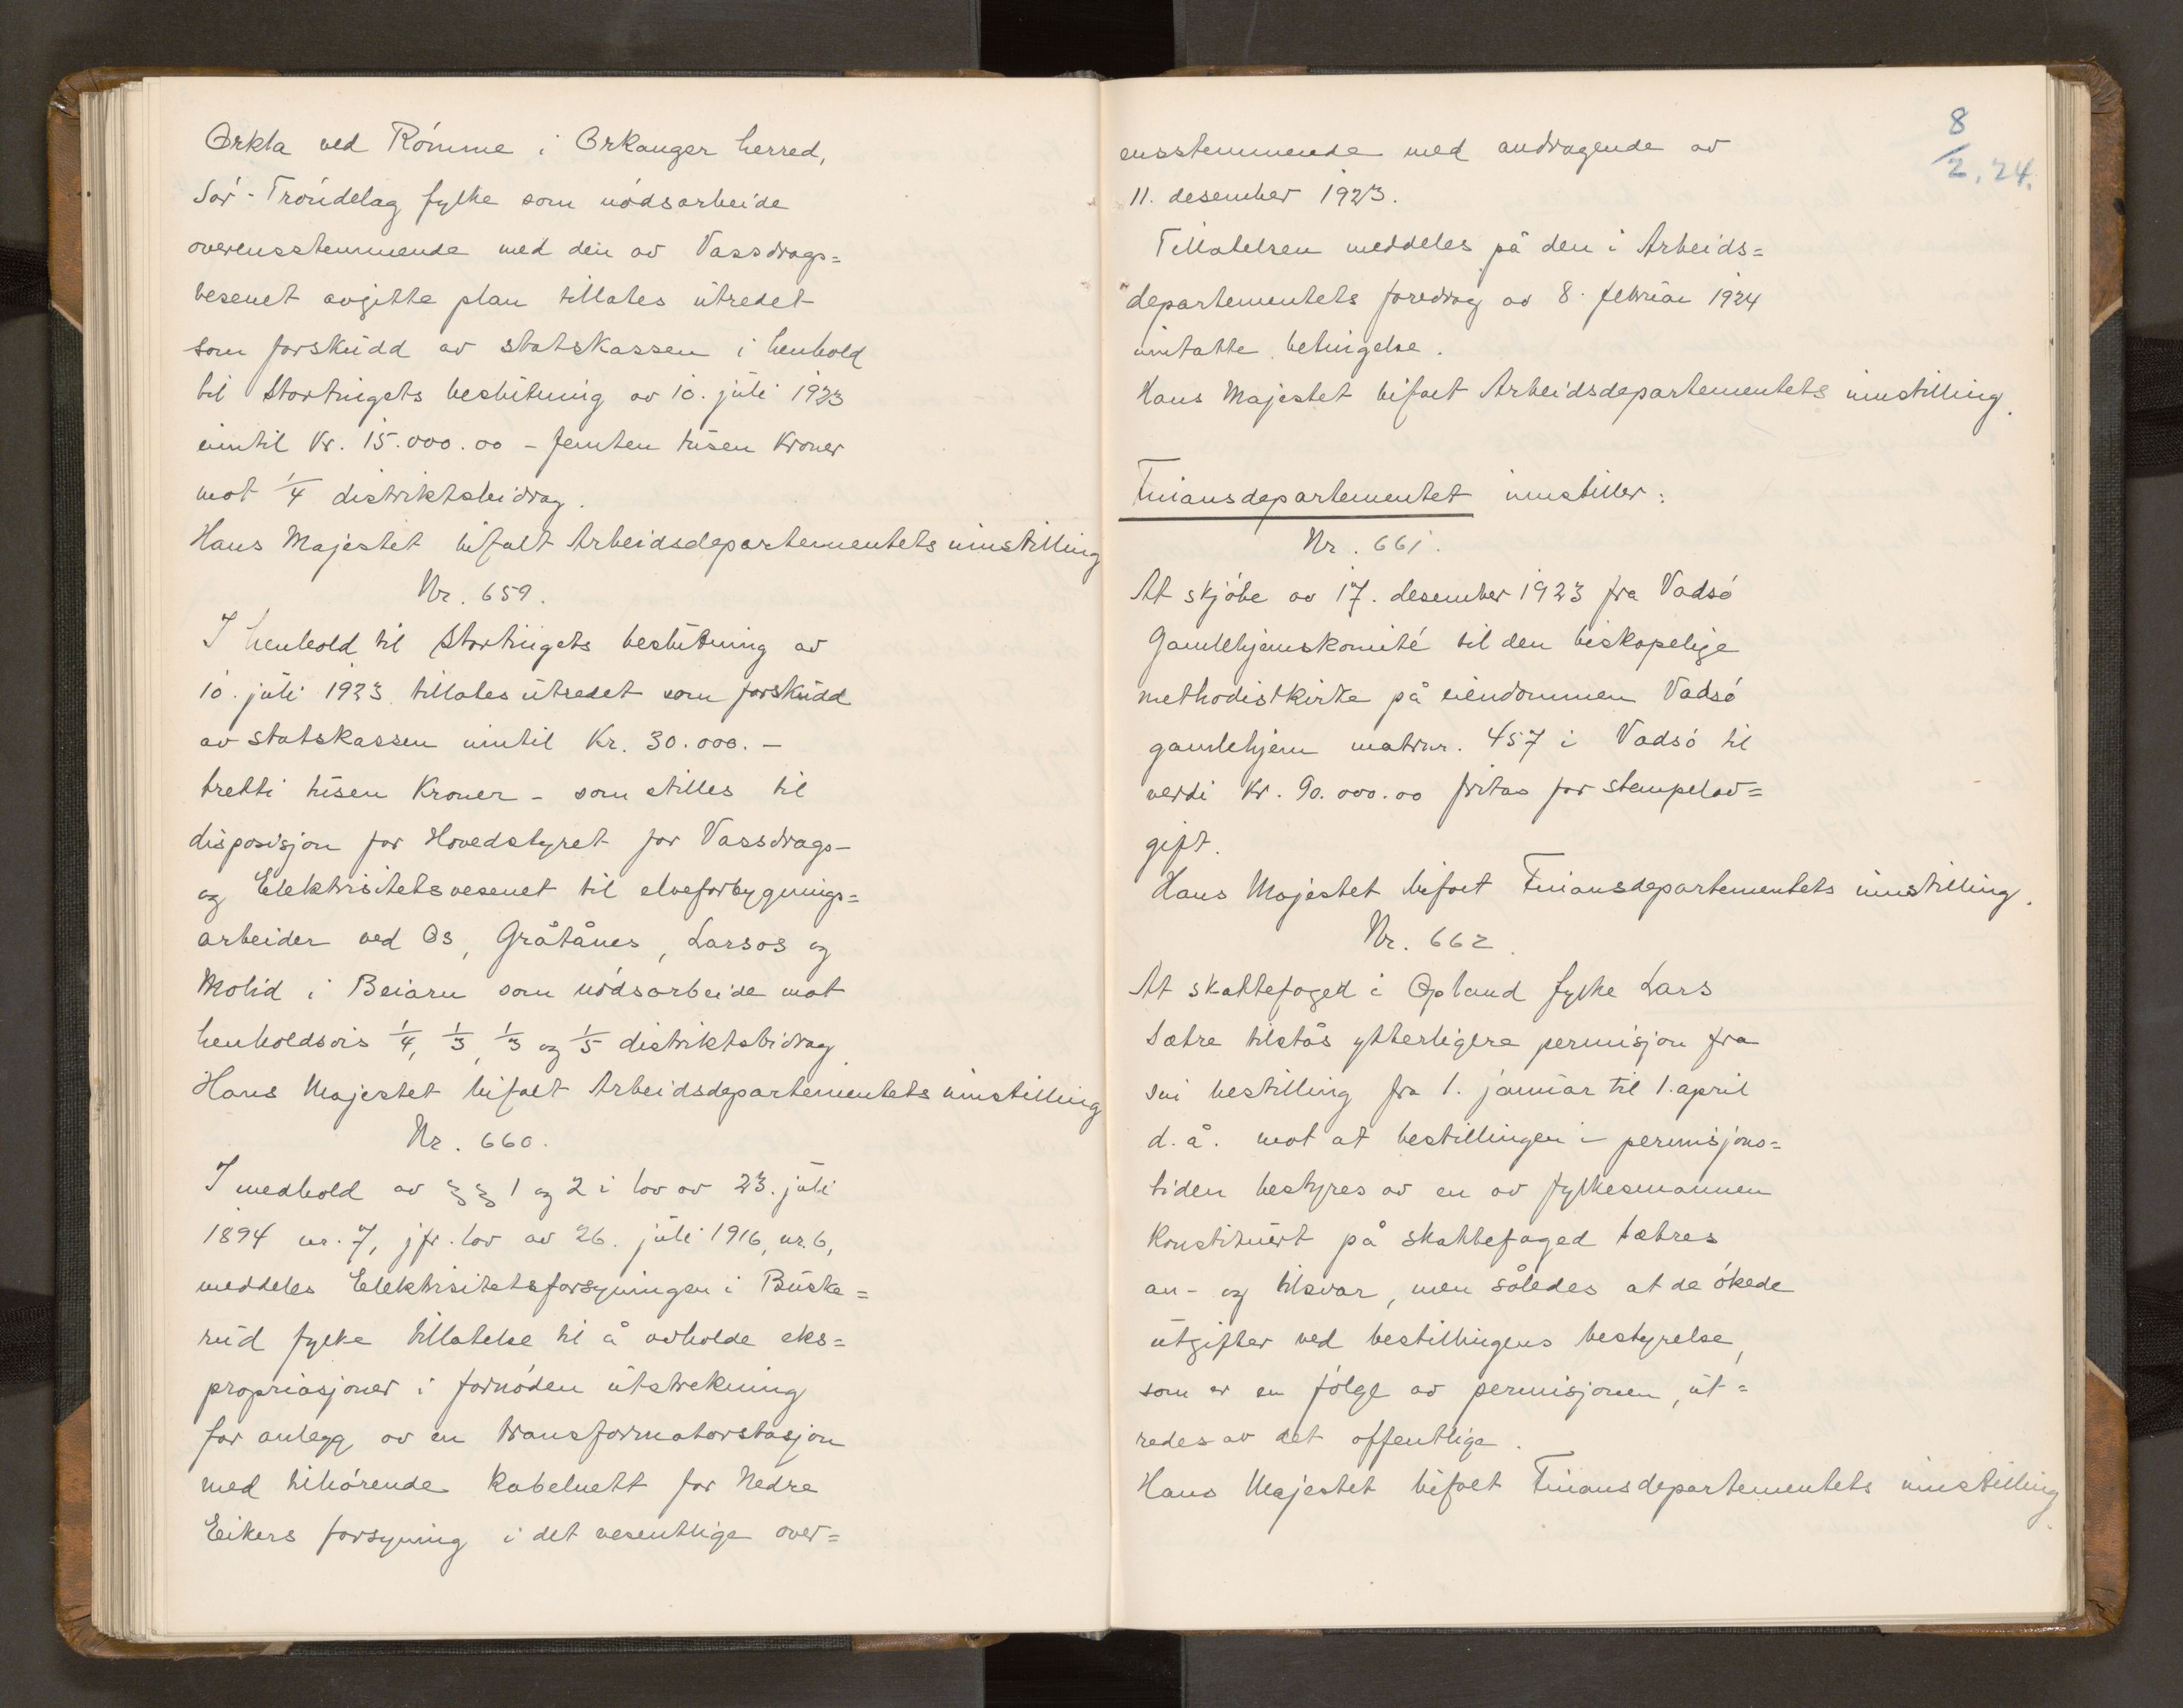 Orkla ved Römme i Orkanger herred,
Sör-Tröndelag fylke som nödsarbeide
overensstemmende med den av Vassdrags=
vesenet avgitte plan tillates utredet
som forskudd av statskassen i henhold
til Stortingets beslutning av 10. juli 1923
inntil kr. 15.000.00 - femten tusen kroner
mot 1/4 distriktsbidrag.
Hans Majestet bifalt Arbeidsdepartementets innstilling
Nr. 659.
I henhold til Stortingets beslutning av
10. juli 1923 tillates utredet som forskudd
av statskassen inntil kr. 30.000.-
tretti tusen kroner - som stilles til
disposisjon for Hovedstyret for Vassdrags-
og Elektrisitetsvesenet til elveforbygnings=
arbeider ved Os, Gråtånes, Larsos og
Molid i Beiarn som nödsarbeide mot
henholdsvis 1/4, 1/3, 1/3 og 1/5 distriktsbidrag.
Hans Majestet bifalt Arbeidsdepartementets innstilling
Nr. 660.
I medhold av §§ 1 og 2 i lov av 23. juli
1894 nr. 7, jfr. lov av 26. juli 1916, nr. 6,
meddeles Elektrisitetsforsyningen i Buske=
rud fylke tillatelse til å avholde eks=
propriasjoner i fornöden utstrekning
for anlegg av en transformatorstasjon
med tilhörende kabelnett for Nedre
Eikers forsyning i det vesentlige over=
8/2.24.
ensstemmende med andragende av
11. desember 1923.
Tillatelsen meddeles på den i Arbeids=
departementets foredrag av 8. februar 1924
inntatte betingelse.
Hans Majestet bifalt Arbeidsdepartementets innstilling.
Finansdepartementet innstiller:
Nr. 661.
At skjöte av 17. desember 1923 fra Vadsö
Gamlehjemskomité til den biskopelige
methodistkirke på eiendommen Vadsö
gamlehjem matrnr. 457 i Vadsö til
verdi kr. 90.000.00 fritas for stempelav=
gift.
Hans Majestet bifalt Finansdepartementets innstilling.
Nr. 662.
At skattefoged i Opland fylke Lars
Sætre tilståes ytterligere permisjon fra
sin bestilling fra 1. januar til 1. april
d.å. mot at bestillingen i permisjons=
tiden bestyres av en av fylkesmannen
konstituert på skattefoged Sætres
an- og tilsvar, men således at de ökede
utgifter ved bestillingens bestyrelse,
som er en fölge av permisjonen, ut=
redes av det offentlige.
Hans Majestet bifalt Finansdepartementets innstilling.